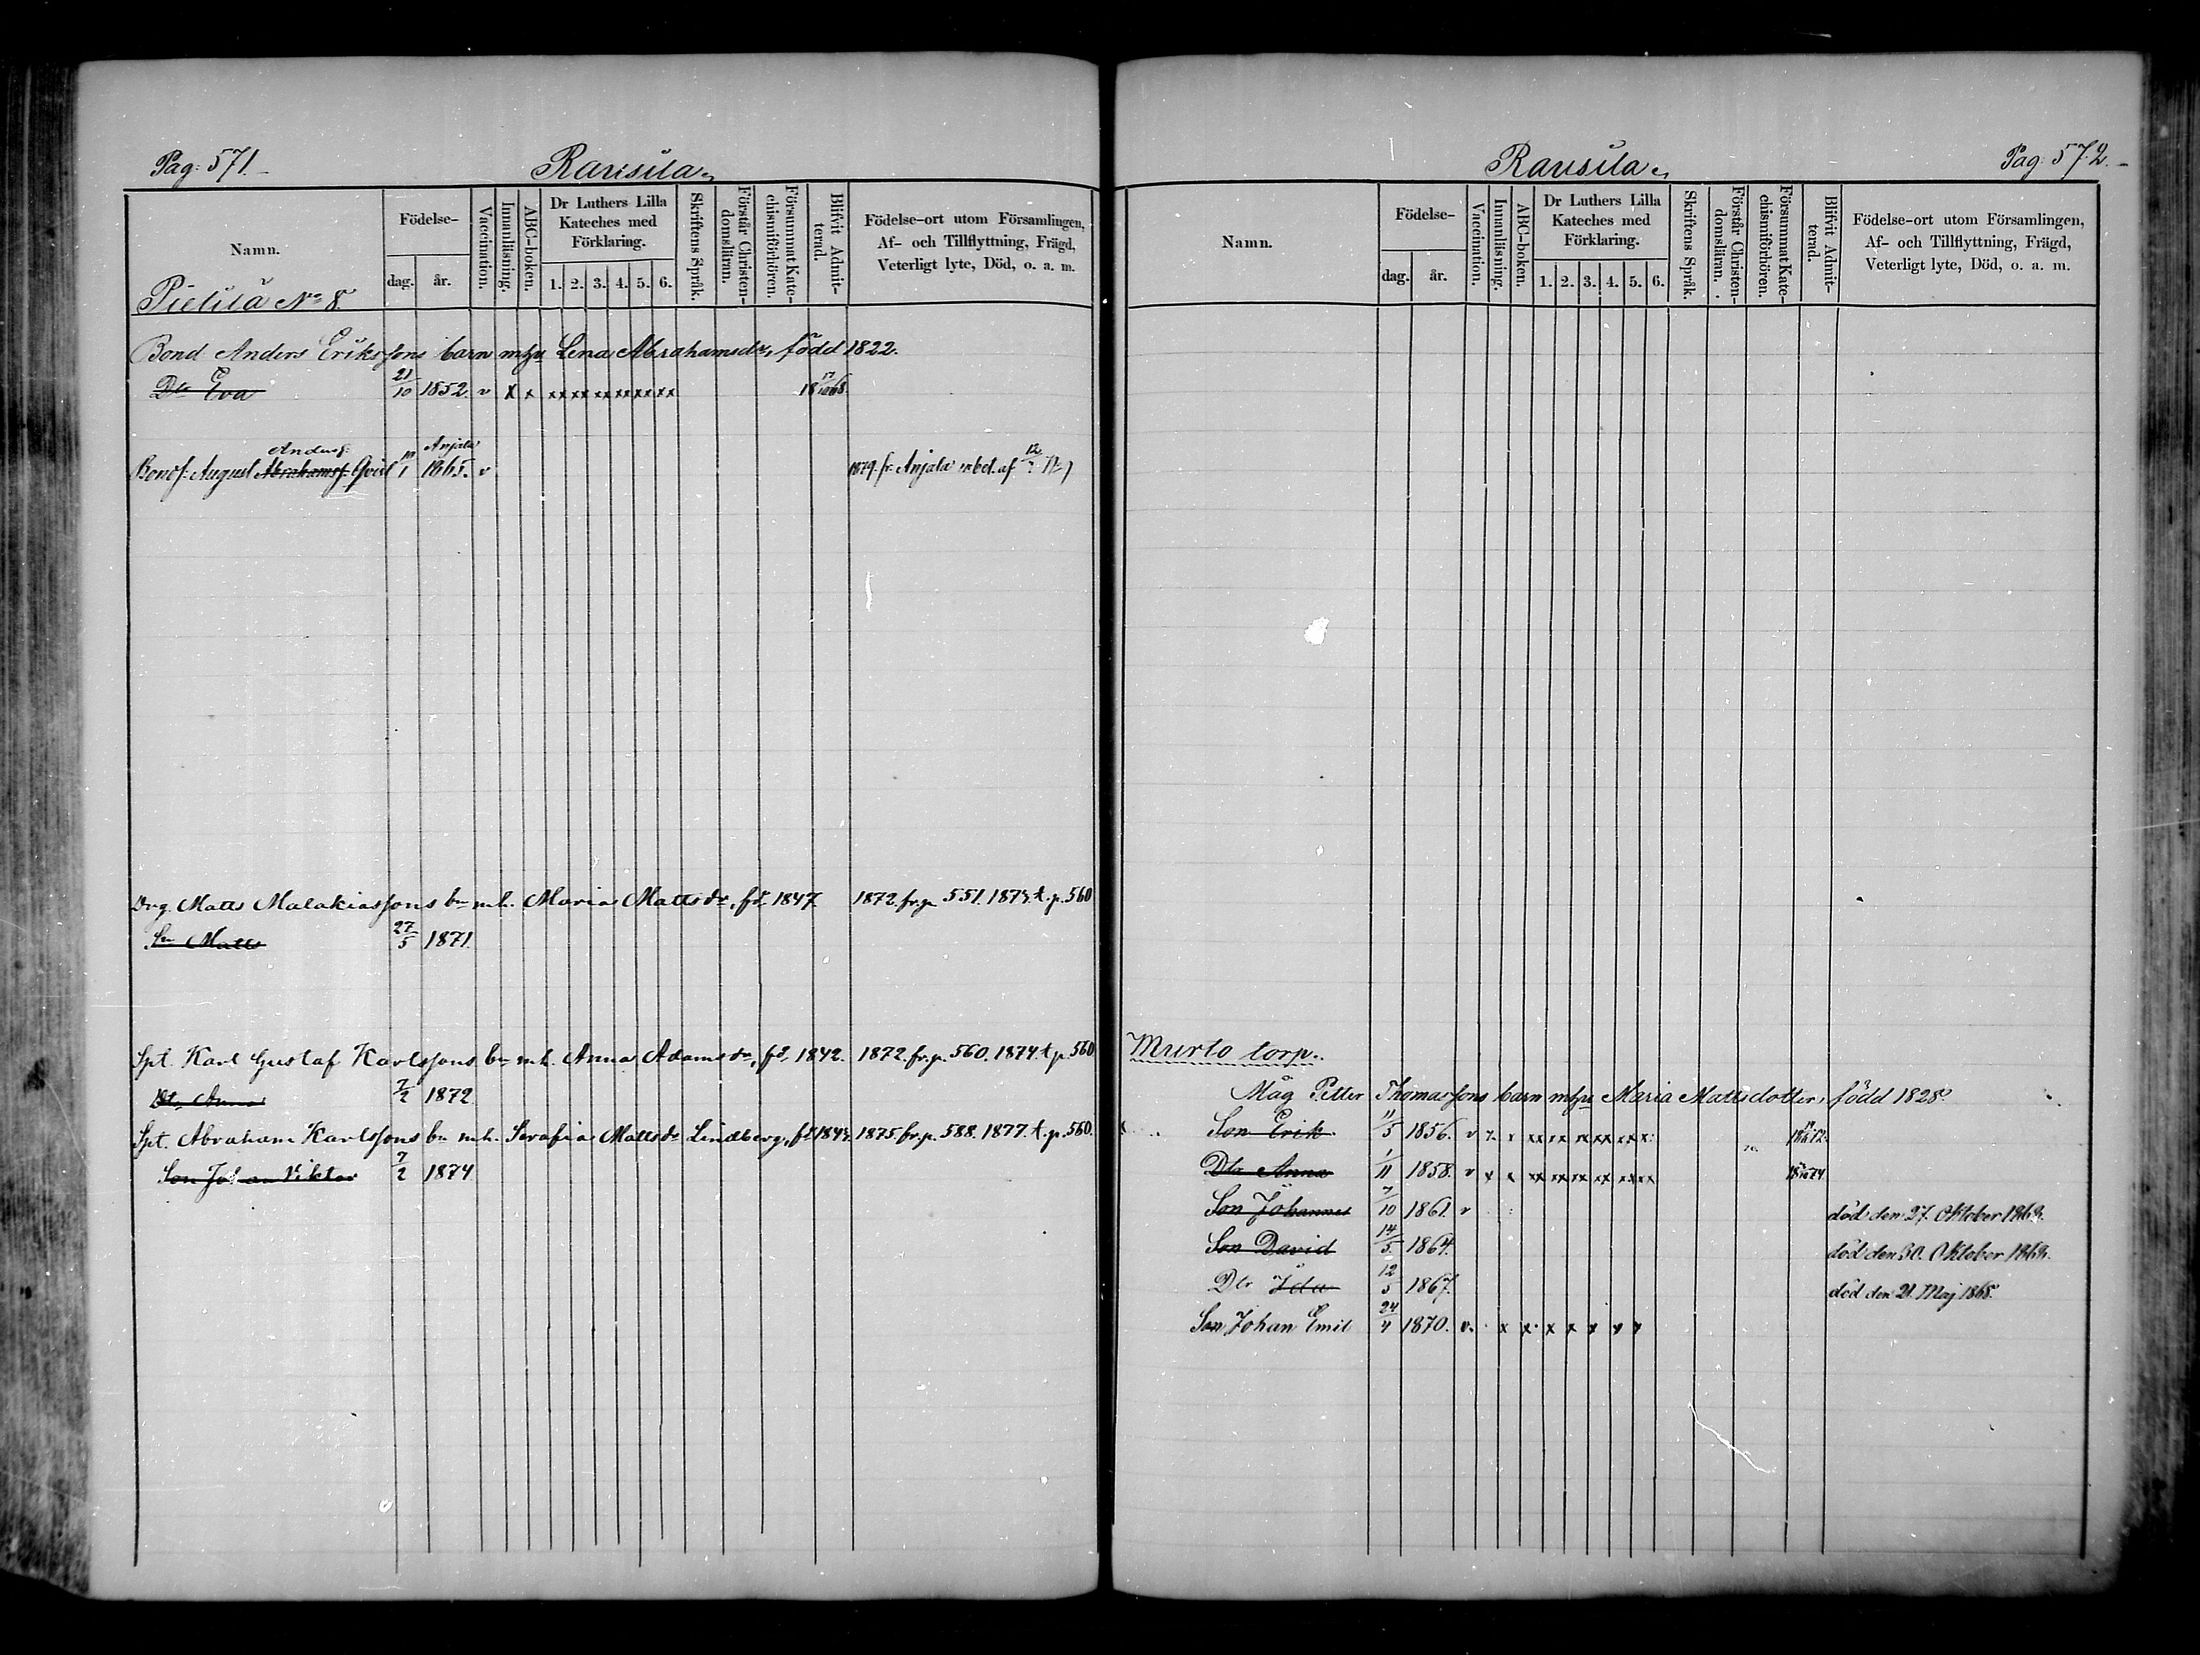 Pag. 571.
Ransila
Namn.
Födelse-
dag.
år.
Vaccination.
Innanläsning.
ABC-boken.
Dr Luthers Lilla Kateches med Förklaring.
1. 2. 3. 4. 5. 6.
Skriftens Språk.
Förstår Christendomsläran.
Försummat Katechismiförhören.
Blifvit Admitterad.
Födelse-ort utom Församlingen,
Af- och Tillflyttning, Frägd,
Veterligt lyte, Död, o. a. m.
Pietilä No 8.
Bond Anders Erikssons barn mhu Lena Abrahamsdr, född 1822.
Dtr Eva 21/10 1852. v x x xx xx xx xx xx xx
Anders. Anjala
Bonds. August Abrahamss. 1865. v 1879 fr. Anjala m bet. af
Drg. Matts Malakiassons bn m.h. Maria Mattsdr, fd. 1847 1872. fr. p. 551. 1873. t. p. 560
Sn Matts 27/5 1871.
Spt. Karl Gustaf Karlssons bn m.h. Anna Adamsdr, fd. 1842. 1872. fr. p. 560. 1874. t. p. 560
Dtr Anna 7/2 1872
Spt. Abraham Karlssons bn m.h. Serafia Mattsdr Lindberg, fd. 1843. 1875. fr. p. 588. 1877. t. p. 560.
Son Johan Viktor 7/2 1874
Pag. 572.
Ransila
Namn.
Födelse-
dag.
år.
Vaccination.
Innanläsning.
ABC-boken.
Dr Luthers Lilla Kateches med Förklaring.
1. 2. 3. 4. 5. 6.
Skriftens Språk.
Förstår Christendomsläran.
Försummat Katechismiförhören.
Blifvit Admitterad.
Födelse-ort utom Församlingen,
Af- och Tillflyttning, Frägd,
Veterligt lyte, Död, o. a. m.
Murto torp.
Måg Petter Thomassons barn mhu Maria Mattsdotter, född 1828.
Son Erik 11/5 1856. v x x xx xx xx xx xx x
Dtr Anna 1/11 1858. v x x xx xx xx xx xx xx
Son Johannes 7/10 1861. v död den 27. Oktober 1868.
Son David 14/5 1864. död den 30. Oktober 1868.
Dtr Ida 12/5 1867. död den 21. Maj 1868.
Son Johan Emil 24/4 1870. v. x x x x x x x